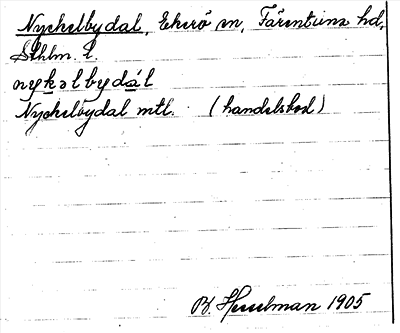 Nyckelbydal, Ekerö sn, Färentuna hd,
Sthlm. l.
nykəlbydál
Nyckelbydal mtl. (handelsbod)
B. Hesselman 1905